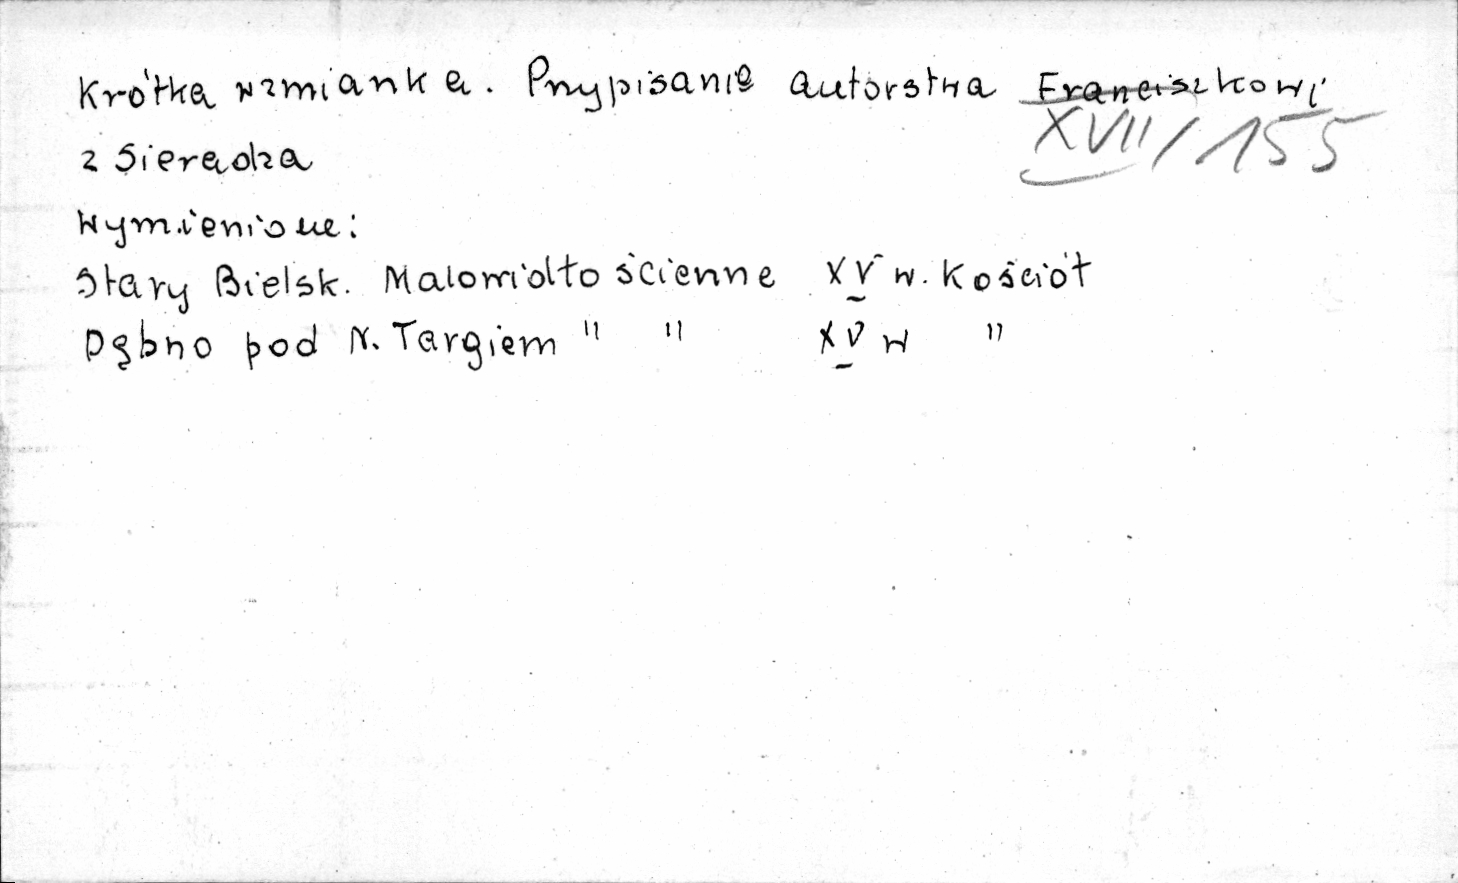 Krótka wzmianka. Przypisanie autorstwa Franciszkowi
XVII/155
z Sieradza
Wymienione:
Stary Bielsk. Malowidło ścienne XV w. Kościół
Dębno pod N. Targiem " " XV w "